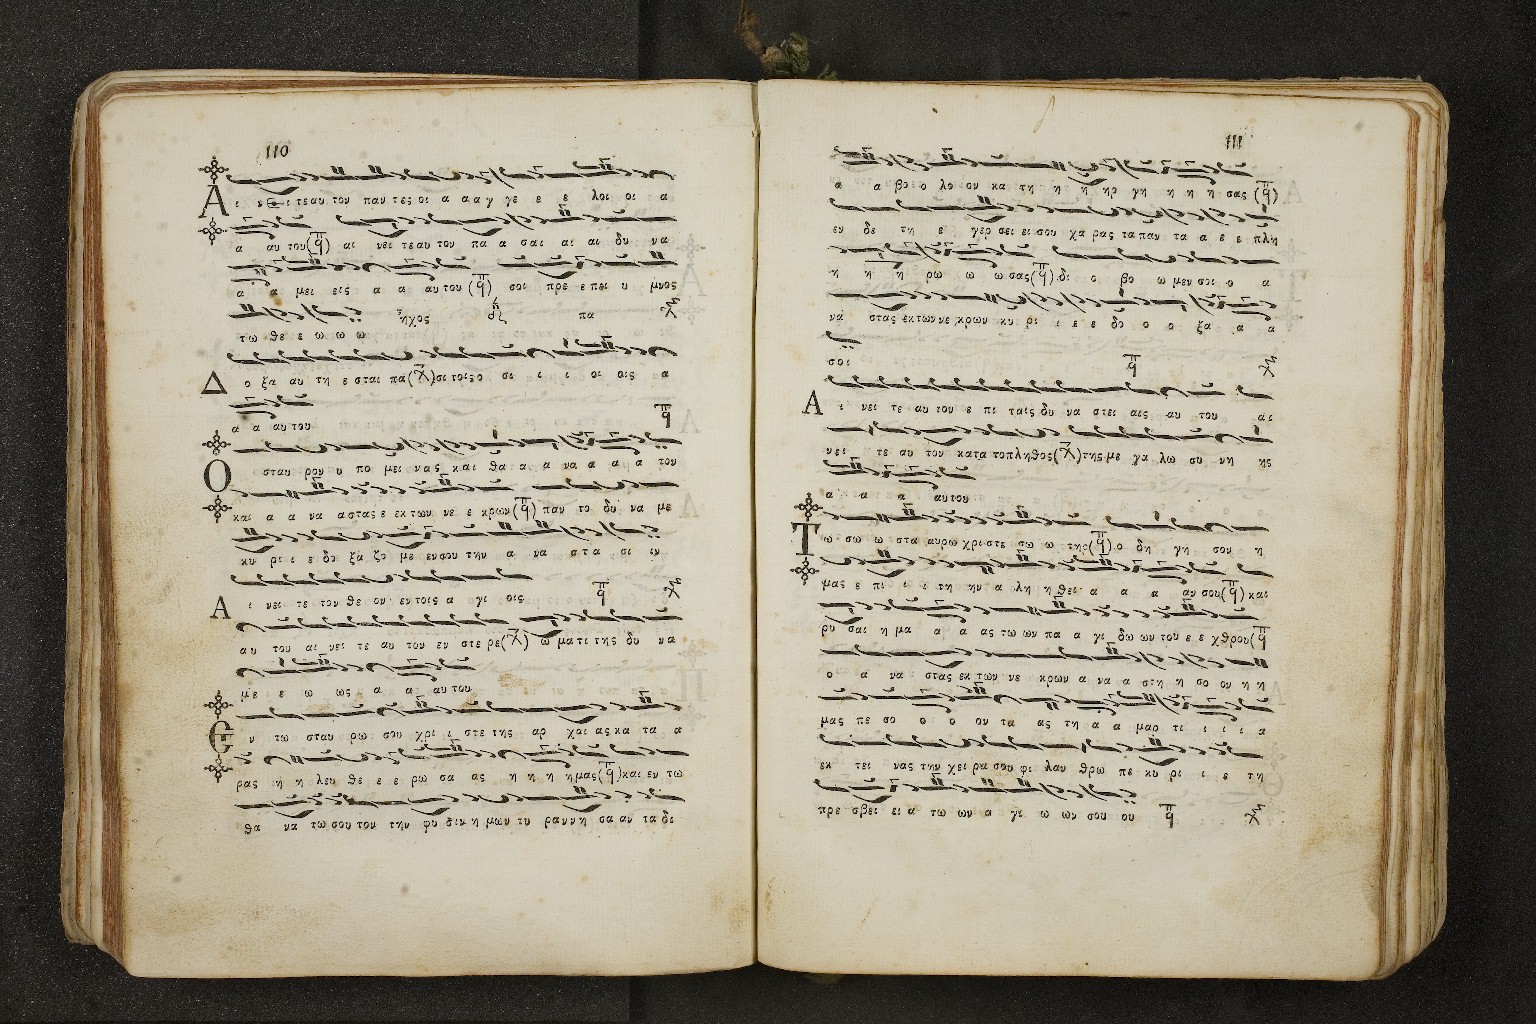 110
Α ι νει τε αυ τον παν τες οι α α α γ γε ε ε λοι οι α
α αυ του (π̅q) αι νει τε αυ τον πα α σαι αι αι δυ να
α α μει εις α α αυ του (π̅q) σοι πρε ε πει υ μνος
ηχος πα
τω θε ε ω ω ω
Δ ο ξα αυ τη ε σται πα σι τοις ο σι ι ι ι οι οις α
α α αυ του
Ο σταυ ρον υ πο μει νας και θα α α να α α α τον
και α α να α στας ε εκ των νε ε κρων (π̅q) παν το δυ να με
κυ ρι ι ε δο ξα ζο με εν σου την α να στα σι ιν
Α ι νει τε τον θε ον εν τοις α γι οις
αυ του αι νει τε αυ τον εν στε ρε ω μα τι της δυ να
με ε ω ως α α αυ του
Ε ν τω σταυ ρω σου χρι ι στε της αρ χαι ας κα τα α
ρας η η λευ θε ε ε ρω σα ας η η η ημας (π̅q) και εν τω
θα να τω σου τον την φυ σιν η μων τυ ραν νη σα αν τα δι
111
α α βο ο λο ον κα τη η η ηρ γη η η η σας (π̅q)
εν δε τη ε γερ σει ει σου χα ρας τα παν τα α ε ε πλη
η η η ρω ω ω σας (π̅q) δι ο βο ω μεν σοι ο α
να στας εκ των νε κρων κυ ρι ι ε ε ε δο ο ο ξα α α
σοι
Α ι νει τε αυ τον ε πι ταις δυ να στει αις αυ του αι
νει τε αυ τον κα τα το πλη θος της με γα λω συ νη ης
α α α αυ του
Τ ω σω ω σταυρω χρι στε σω ω της (π̅q) ο δη γη σον η
μας ε πι ι ι τη ην α λη η θει α α α αν σου (π̅q) και
ρυ σαι η μα α α ας τω ων πα α γι δω ων του ε ε χθρου (π̅q
ο α να στας εκ των νε κρων α να α στη η σο ον η η
μας πε σο ο ο ον τα ας τη α α μαρ τι ι ι ι α
εκ τει νας την χει ρα σου φι λαν θρω πε κυ ρι ι ε τη
πρε σβει ει α τω ων α γι ω ων σου ου